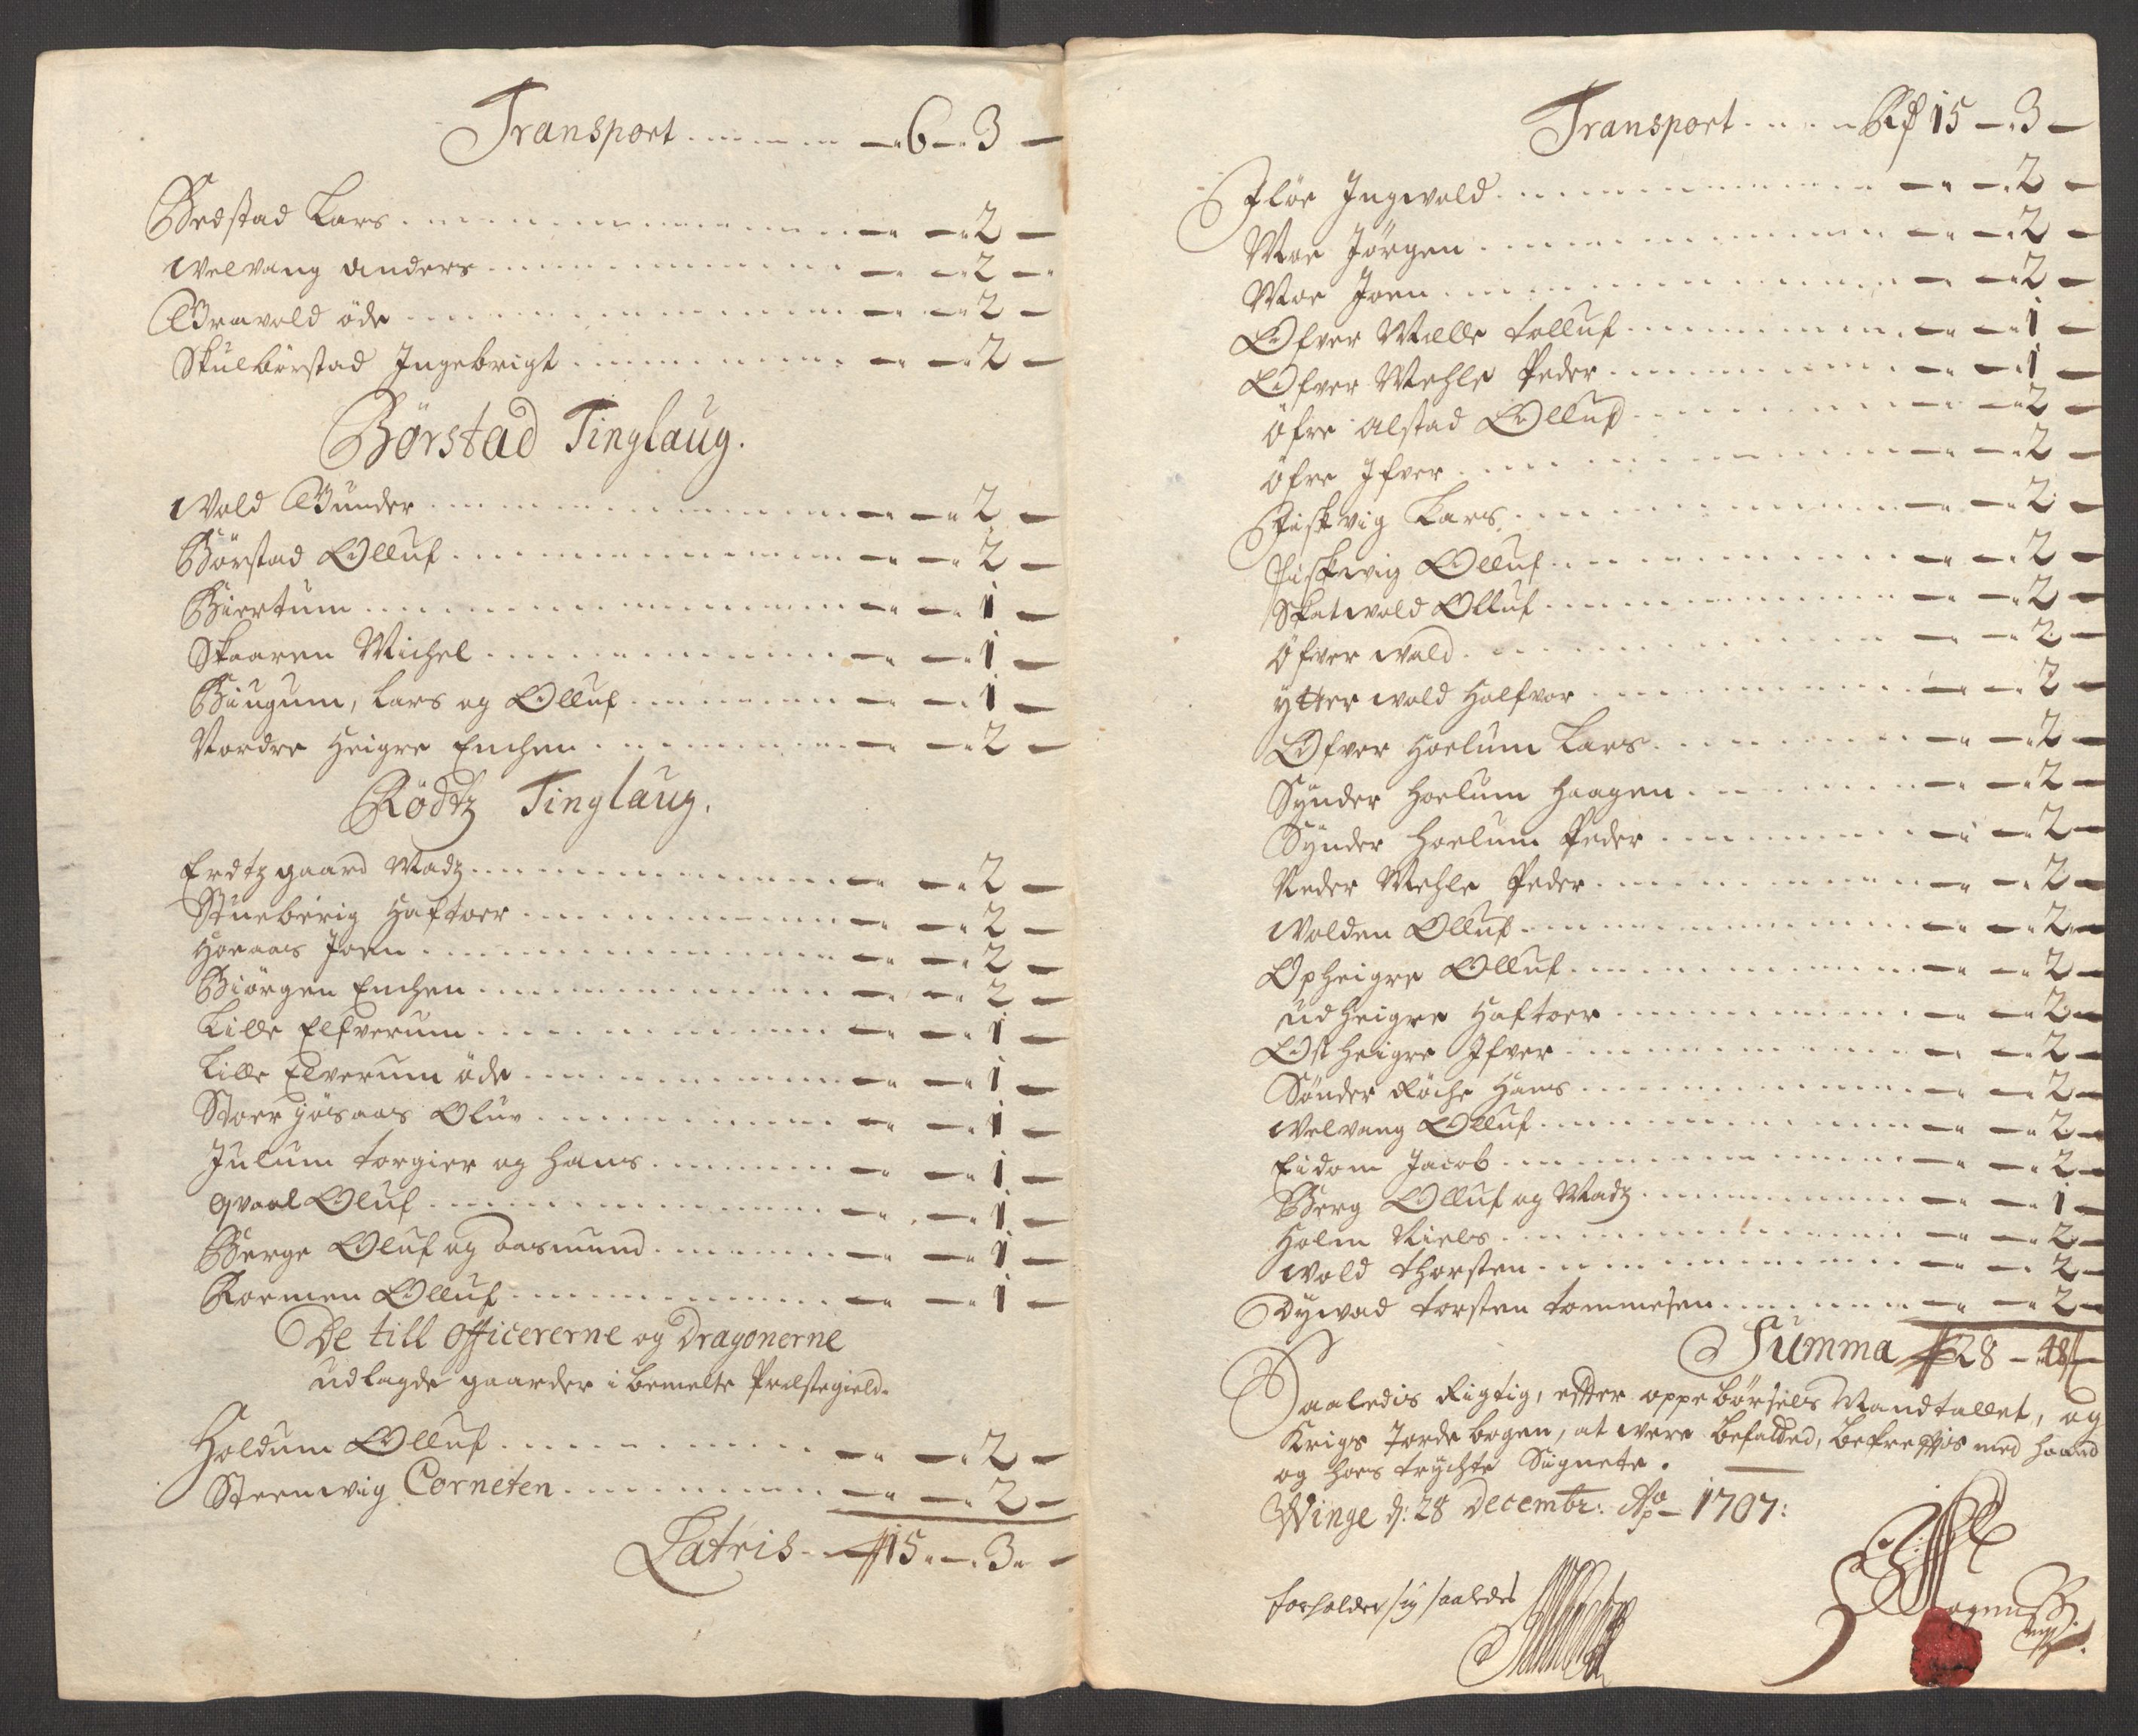 Transport - 6 - 3 -
Bedstad Lars - - 2 -
Welvang Anders - - 2 -
Gravold öde - - 2 -
Skulbörstad Ingebrigt - - 2 -
Börstad Tinglaug.
Wold Gunder - - 2 -
Börstad Olluf - - 2 -
Biertum - - 1 -
Skaaren Michel - - 1 -
Biugum, Lars og Olluf - - 1 -
Nordre Heigre Enchen - - 2 -
Rödtz Tinglaug.
Erdtzgaard Madtz - - 2 -
Stueberig Haftoer - - 2 -
Horaas Joen - - 2 -
Biörgen Enchen - - 2 -
Lille Elfverum - - 1 -
Lille Elverum öde - - 1 -
Stoer Jösaas Oluv - - 1 -
Julum Torgier og Hans - - 1 -
Qvaal Oluf - - 1 -
Berge Oluf og Aasmund - - 1 -
Kormen Olluf - - 1 -
De till Officererne og Dragonerne
udlagde gaarder i bemelte Præstegield.
Holdum Olluf - - 2 -
Steenwig Corneten - - 2 -
Latris - 15 - 3 -
Transport - Rd 15 - 3 -
Flöe Ingwold - - 2 -
Moe Jörgen - - 2 -
Moe Joen - - 2 -
Ofver Mælle Tolluf - - 1 -
Ofver Mehle Peder - - 1 -
Öfre Alstad Olluf - - 2 -
Öfre Ifver - - 2 -
Fiskvig Lars - - 2 -
Fiskwig Olluf - - 2 -
Skatwold Olluf - - 2 -
Öfver Wold - - 2 -
Ytter Wold Halfvor - - 2 -
Ofver Hoelum Lars - - 2 -
Synder Hoelum Haagen - - 2 -
Synder Hoelum Peder - - 2 -
Neder Mehle Peder - - 2 -
Wolden Olluf - - 2 -
Opheigre Olluf - - 2 -
Udheigre Haftoer - - 2 -
Ostheigre Ifver - - 2 -
Sönder Röche Hans - - 2 -
Welvang Olluf - - 2 -
Eidom Jacob - - 2 -
Berg Olluf og Madtz - - 1 -
Holm Niels - - 2 -
Wold Thorsten - - 2 -
Dywad Torsten Tommesen - - 2 -
Summa 28 - 48 ß
Saaledis Rigtig, effter oppebörsels Mandtallet, og
Krigs Jordebogen, at were befalded, bekreffis med haand
og hoes trychte Signete.
Winge d: 28 Decembr: Ao 1707:
forholder sig saaledes